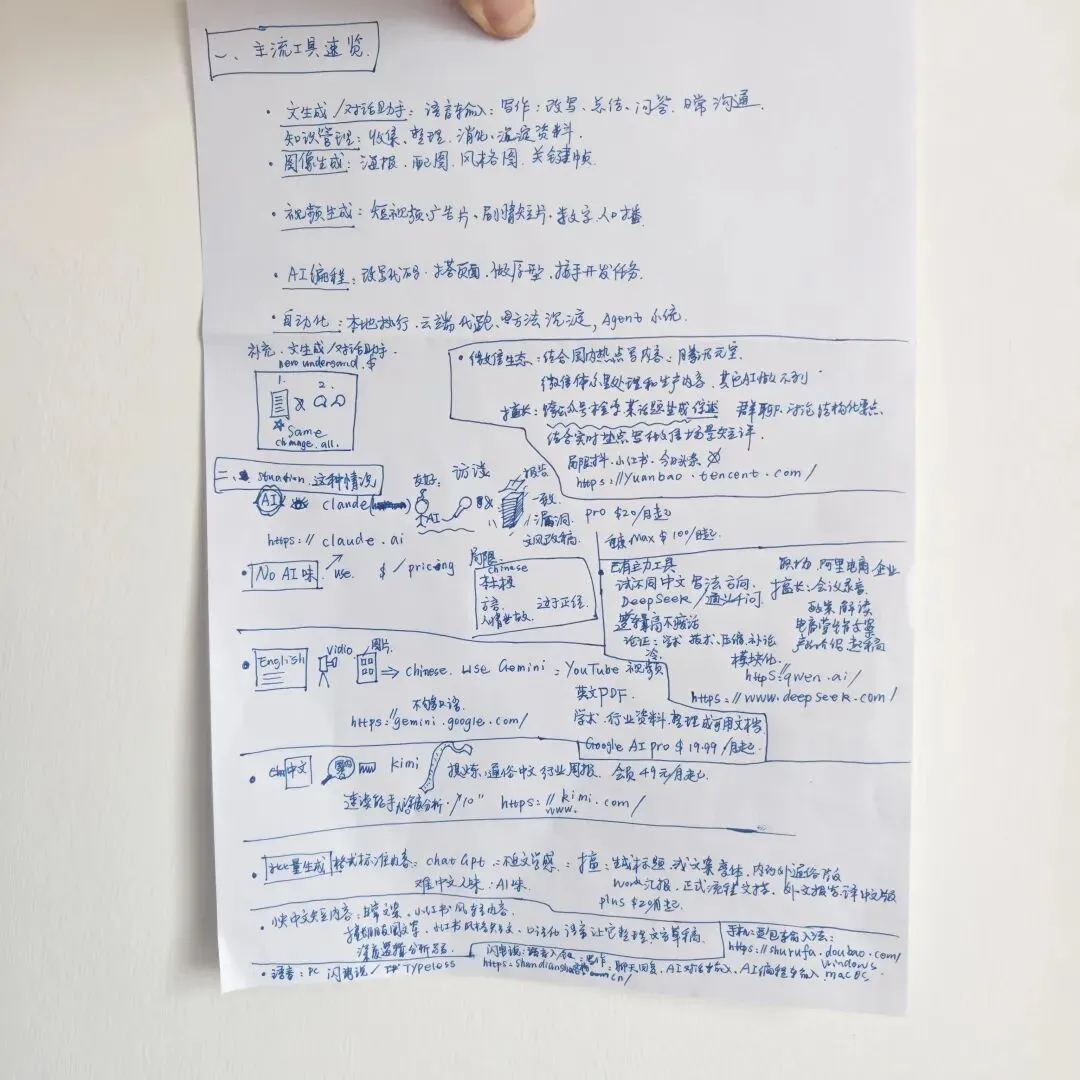 一、主流工具速览.
· 文生成/对话助手: 语音输入: 写作: 改写、总结、问答. 日常沟通.
知识管理: 收集、整理. 消化、沉淀资料.
· 图像生成: 海报. 配图. 风格图. 关键帧.
· 视频生成: 短视频、广告片、剧情短片、数字人口播
· AI编程: 改写代码. 搭页面、做原型, 接手开发任务.
· 自动化: 本地执行. 云端代跑. 方法沉淀, Agent 系统.
补充. 文生成/对话助手.
1. 2.
Same
change. all.
· 微信生态: 结合国内热点写内容: 腾讯元宝.
微信体系里处理和生产内容. 其它AI做不到
擅长: 跨公众号检索某话题生成综述 群聊 讨论结构化要点
结合实时热点写微信场景短评.
局限抖. 小红书. 今日头条
https://yuanbao.tencent.com/
二、 stuation 这种情况
AI claude
友好: 访谈
AI
报告
一致.
漏洞.
文风改稿.
pro $20/月起
Max $100/月起.
https://claude.ai
· No AI味. use. $/pricing
局限:
chinese
本土梗
方言. 过于正经.
人情世故.
试不同中文写法方向.
DeepSeek/通义千问.
论证: 学术 技术、压缩、补论
冷.
阿里电商. 企业
擅长: 会议录音.
政策解读
电商营销文案
产品介绍起稿
模块化.
https://qwen.ai/
https://www.deepseek.com/
· English vidio 图片 ⇒ chinese. use Gemini: YouTube 视频
英文PDF.
不够口语.
https://gemini.google.com/
学术. 行业资料. 整理成可用文档
Google AI pro $19.99/月起.
· 中文 kimi 提炼、通俗中文行业周报. 会员 49元/月起.
速读能手 深度分析. "10" https://www.kimi.com/
· 批量生成 格式标准内容: chatGpt : 擅: 生成标题. 改文案变体. 内功外通俗改
难中文人味: AI味.
work汇报. 正式流程文档. 外文报告译中文版
plus $20月起.
· 快中文短内容: 日常文案. 小红书风格内容.
擅朋友圈文案. 小红书风格短文. 口语化 语音让它整理文章草稿.
深度逻辑分析弱
手机: 豆包输入法:
https://shurufa.doubao.com/
windows
macOS.
· 语音: PC 闪电说/ Typeless
闪电说: 语音输入
聊天回复. AI对话输入. AI编程输入